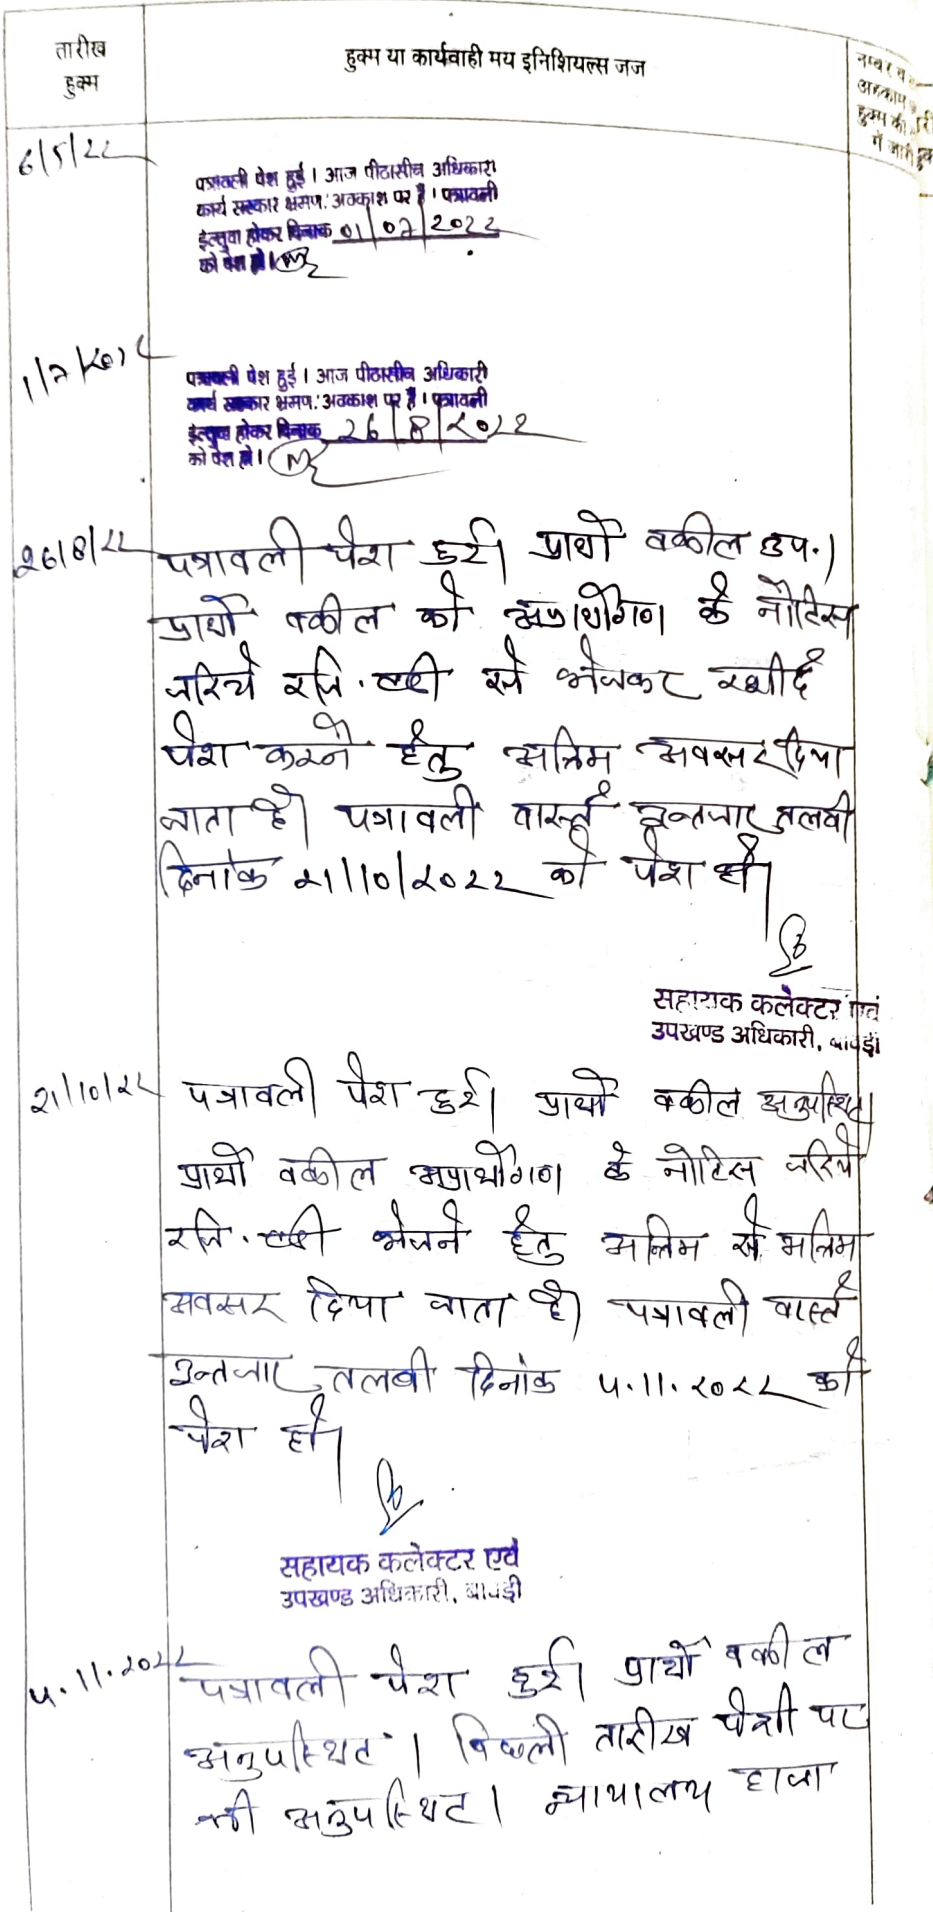 तारीख
हुक्म
हुक्म या कार्यवाही मय इनिशियल्स जज
नम्बर व
अहकाम
हुक्म की
में जारी
6/5/22
पत्रावली पेश हुई। आज पीठासीन अधिकारी
कार्य सरकार भ्रमण/अवकाश पर है। पत्रावली
ईल्तुवा होकर दिनांक 01/07/2022
को पेश हो।
1/7/2022
पत्रावली पेश हुई। आज पीठासीन अधिकारी
कार्य सरकार भ्रमण/अवकाश पर है। पत्रावली
ईल्तुवा होकर दिनांक 26/8/2022
को पेश हो।
26/8/22
पत्रावली पेश हुई। प्रार्थी वकील उप.।
प्रार्थी वकील को अप्रार्थीगण के नोटिस
जरिये रजि. एडी से भेजकर रसीदें
पेश करने हेतु अन्तिम अवसर दिया
जाता है। पत्रावली वास्ते इन्तजार तलबी
दिनांक 21/10/2022 को पेश हो।
सहायक कलेक्टर एवं
उपखण्ड अधिकारी, बावड़ी
21/10/22
पत्रावली पेश हुई। प्रार्थी वकील अनुपस्थित।
प्रार्थी वकील अप्रार्थीगण के नोटिस जरिये
रजि. एडी भेजने हेतु अन्तिम से अन्तिम
अवसर दिया जाता है। पत्रावली वास्ते
इन्तजार तलबी दिनांक 4.11.2022 को
पेश हो।
सहायक कलेक्टर एवं
उपखण्ड अधिकारी, बावड़ी
4.11.2022
पत्रावली पेश हुई। प्रार्थी वकील
अनुपस्थित। पिछली तारीख पेशी पर
भी अनुपस्थित। न्यायालय हाजा